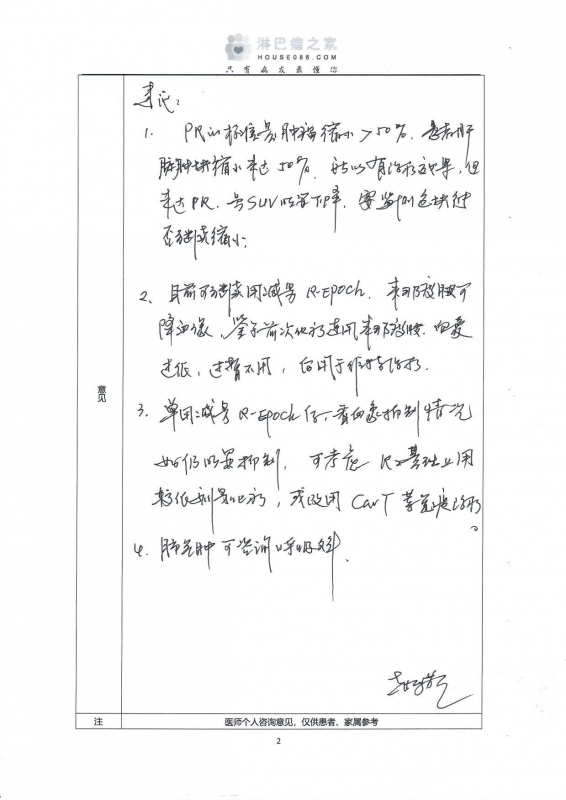 淋巴瘤之家
HOUSE086.COM
只有病友最懂你
建议：
1. PR的标准是肿瘤缩小>50%.患者肝
脏肿块缩小未达50%.所以有治疗效果,但
未达PR.另SUV临界下降.需监测包块
否继续缩小;
2、目前可继续用减量R-EPOCH.来那度胺可
降血像,鉴于前次化疗连用来那度胺.白象
过低,过暂不用,后用于维持治疗.
3. 单用减量R-EPOCH后,看血象抑制情况
如仍明显抑制.可考虑R基础上用
较低剂量化疗,或改用CarT等免疫治疗
。
4. 肺气肿可咨询呼吸科.
意见
注
医师个人咨询意见，仅供患者、家属参考
2